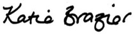 Katie Brazier